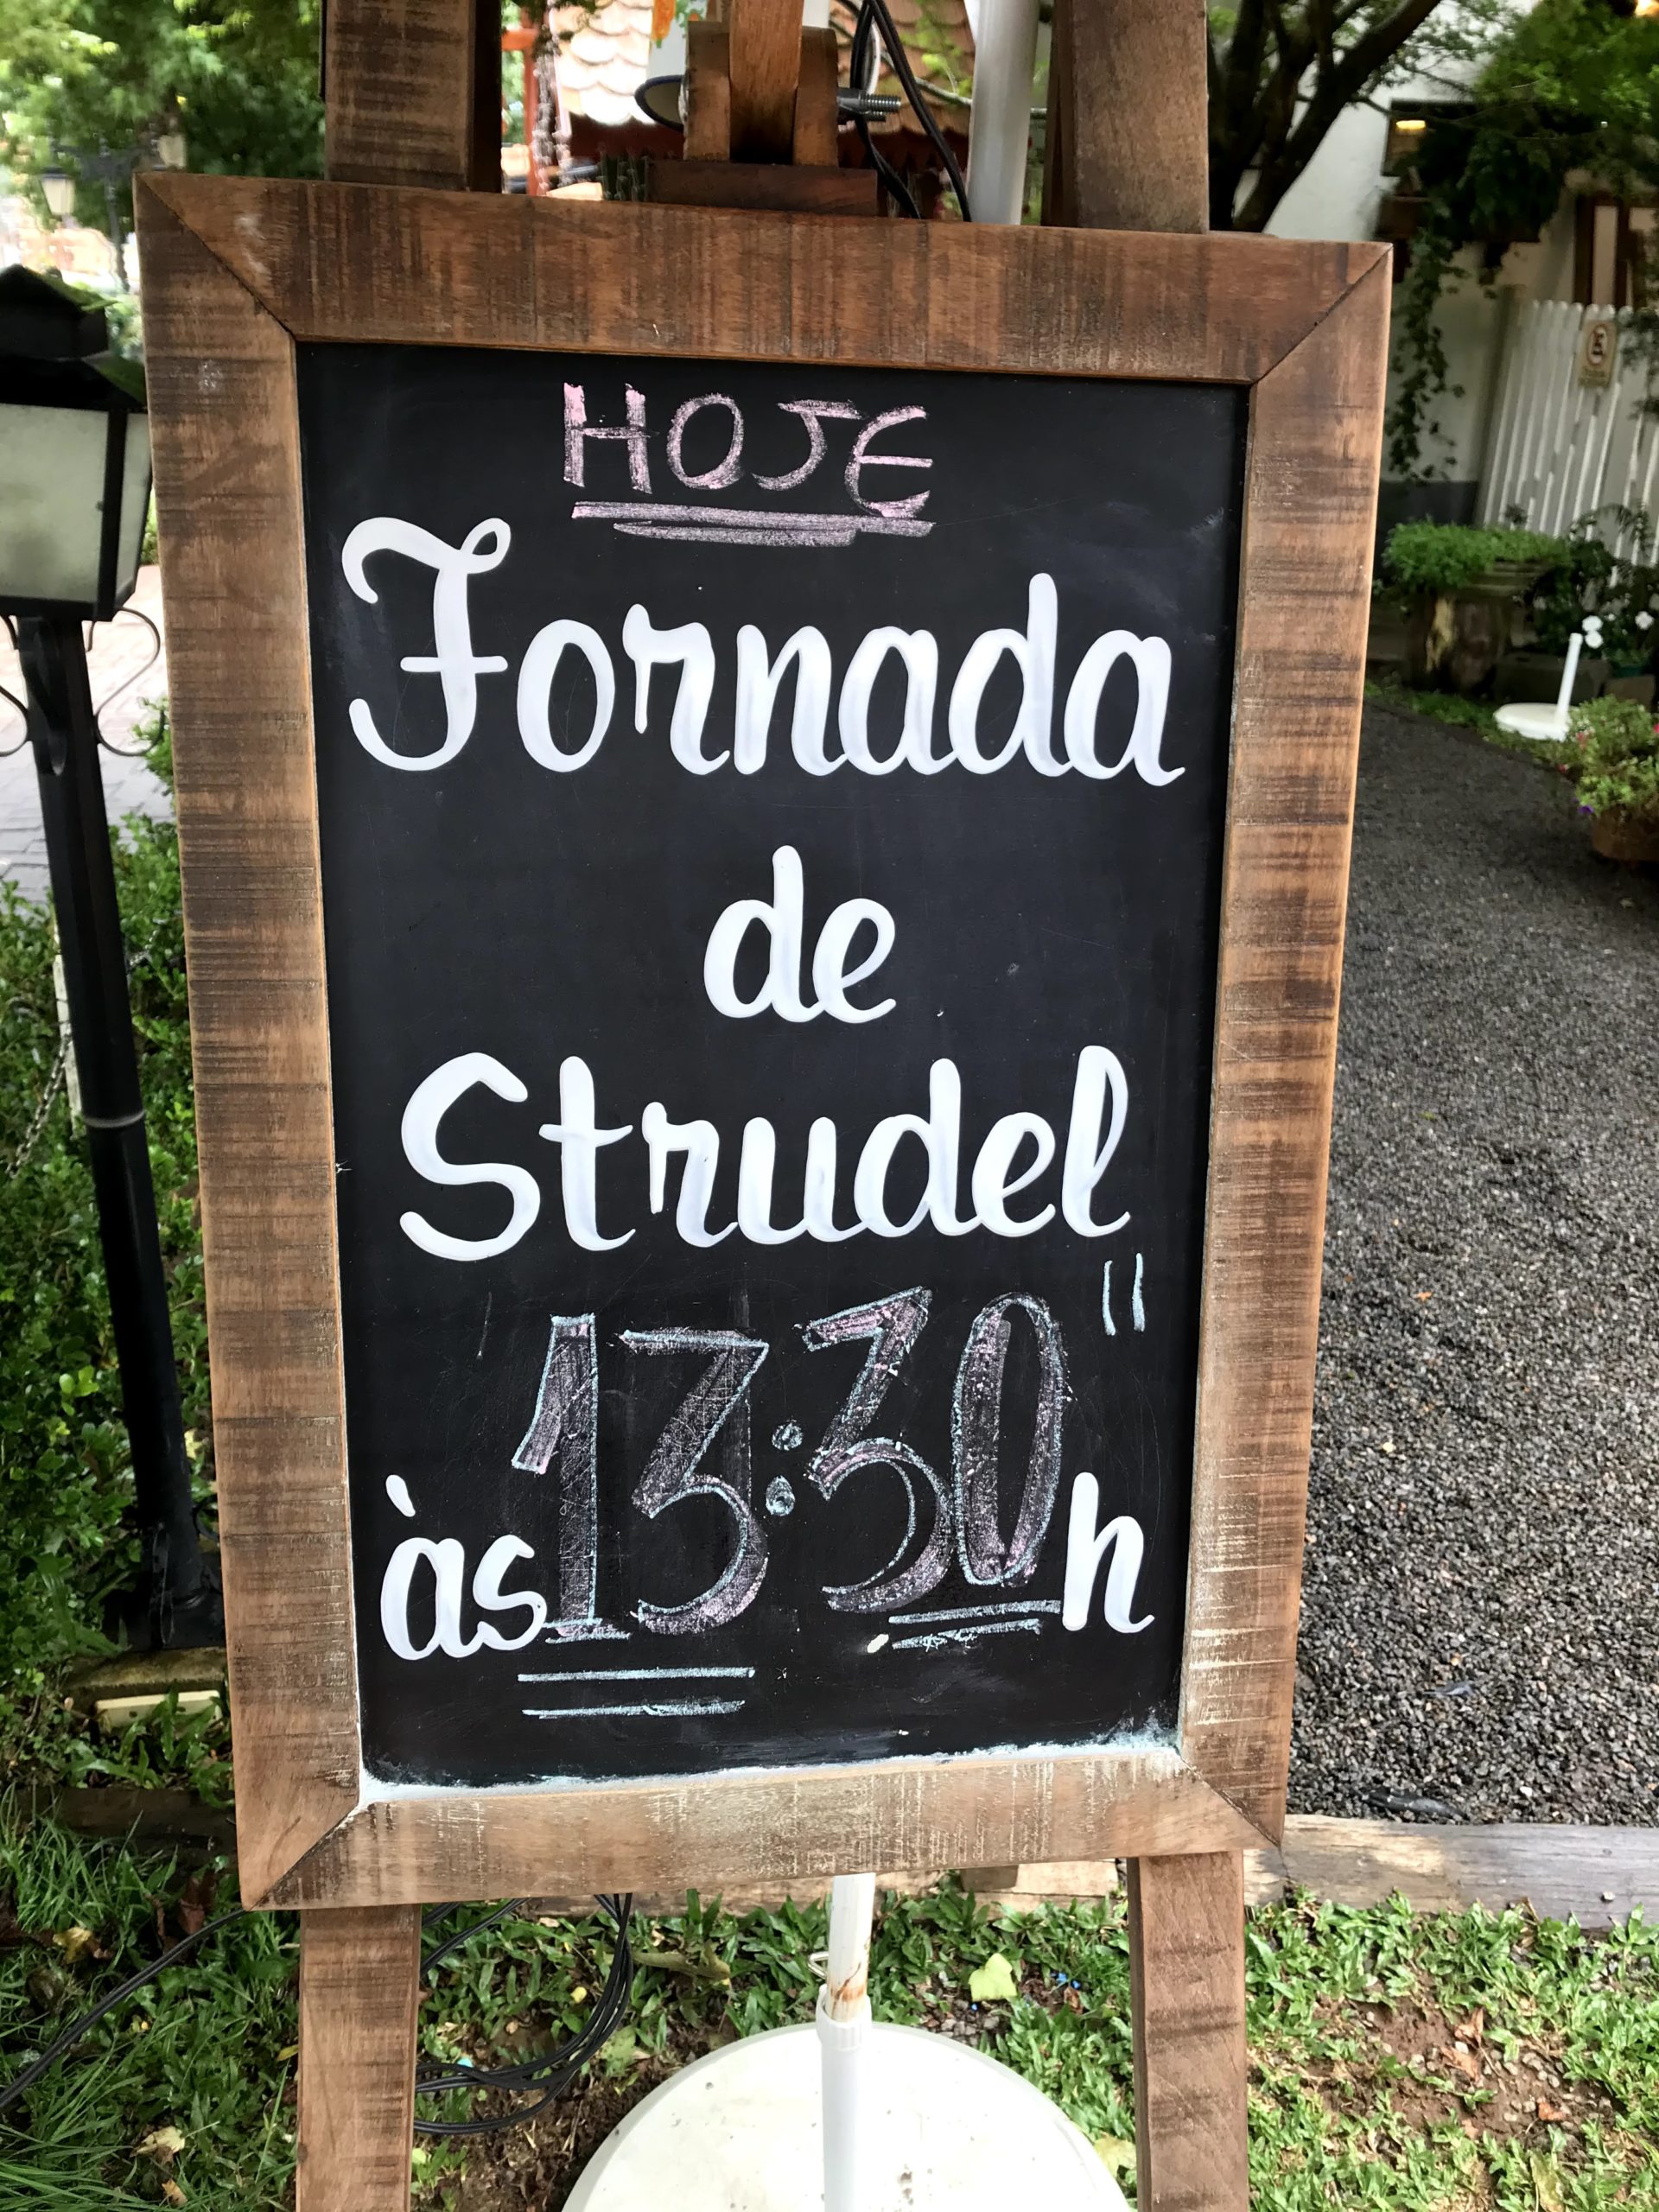 HOJE
Fornada
de
Strudel
às 13:30 h